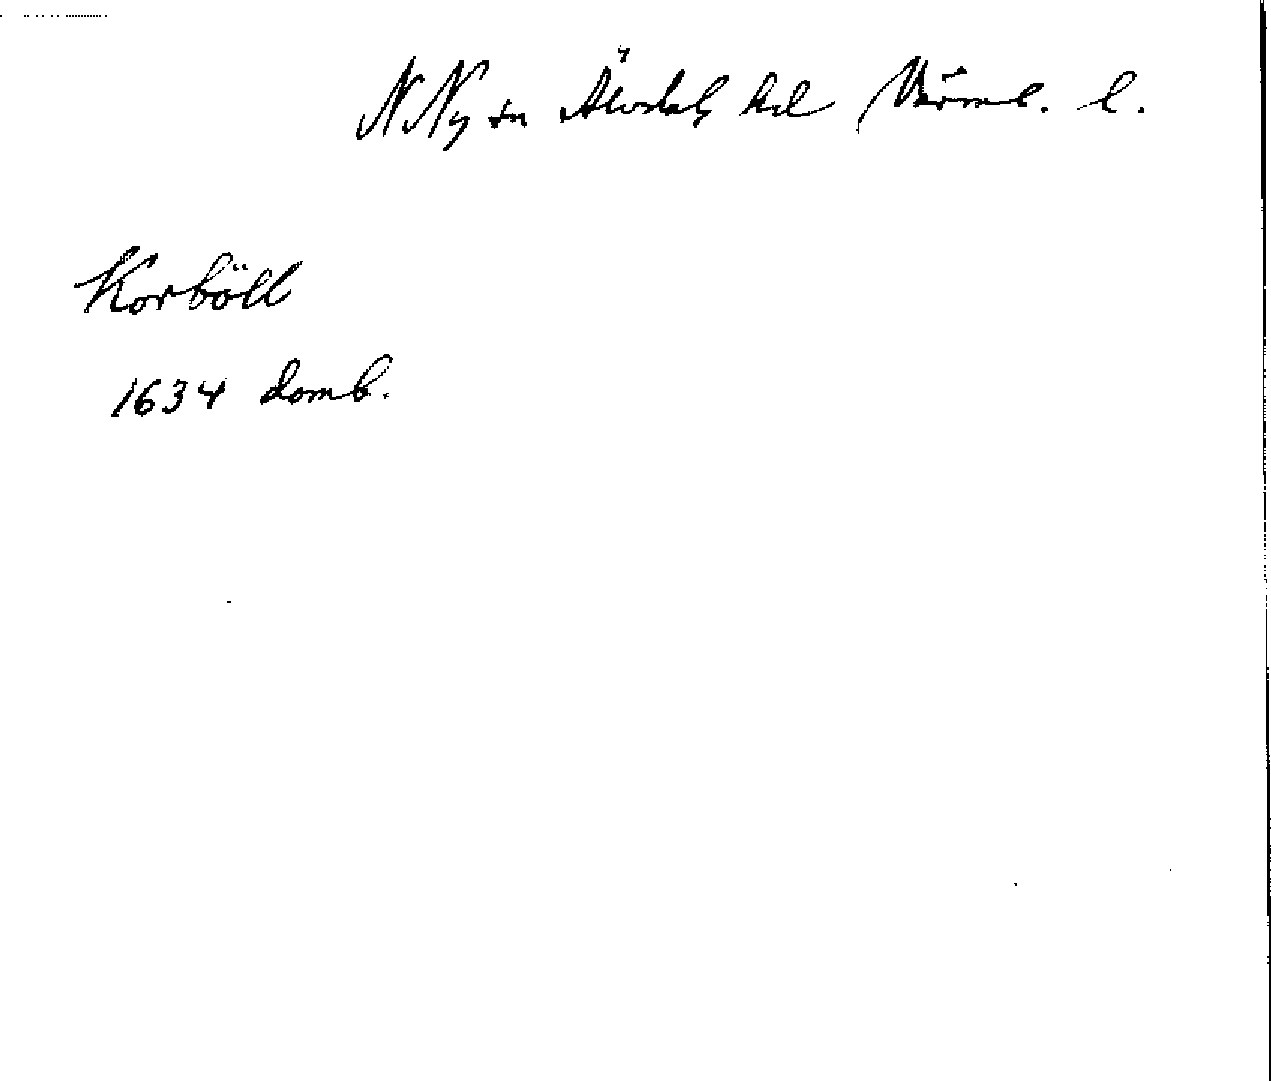 N Ny sn Älvdals hd Värml. l.
Korböll
1634 domb.